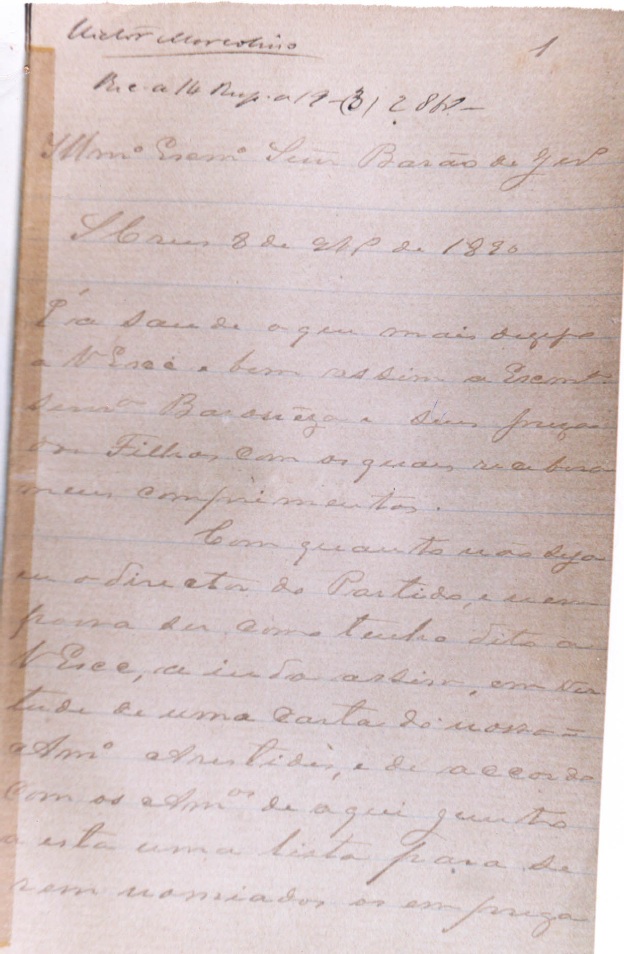 Victor Marcolino
1
Rec. a 14 Resp. a 19 - (3) 2 862 -
Illmº Exmº Señr Barão de Jer
S Cruz 8 de de 1890
É a saude o que mais
a V Exce, e bem assim a Excmt
senrª Baronêza e seus preza
dos Filhos com os quais recebera
meus comprimentos.
Com quanto não seja
eu o director do Partido, e nem
possa ser, como tenho dito a
V Exce, ainda assim, em vir
tude de uma Carta do nosso =
Amº Aristidis, e de accordo
com os Amos de aqui junto
a esta uma lista para se
rem nomiados os empreza